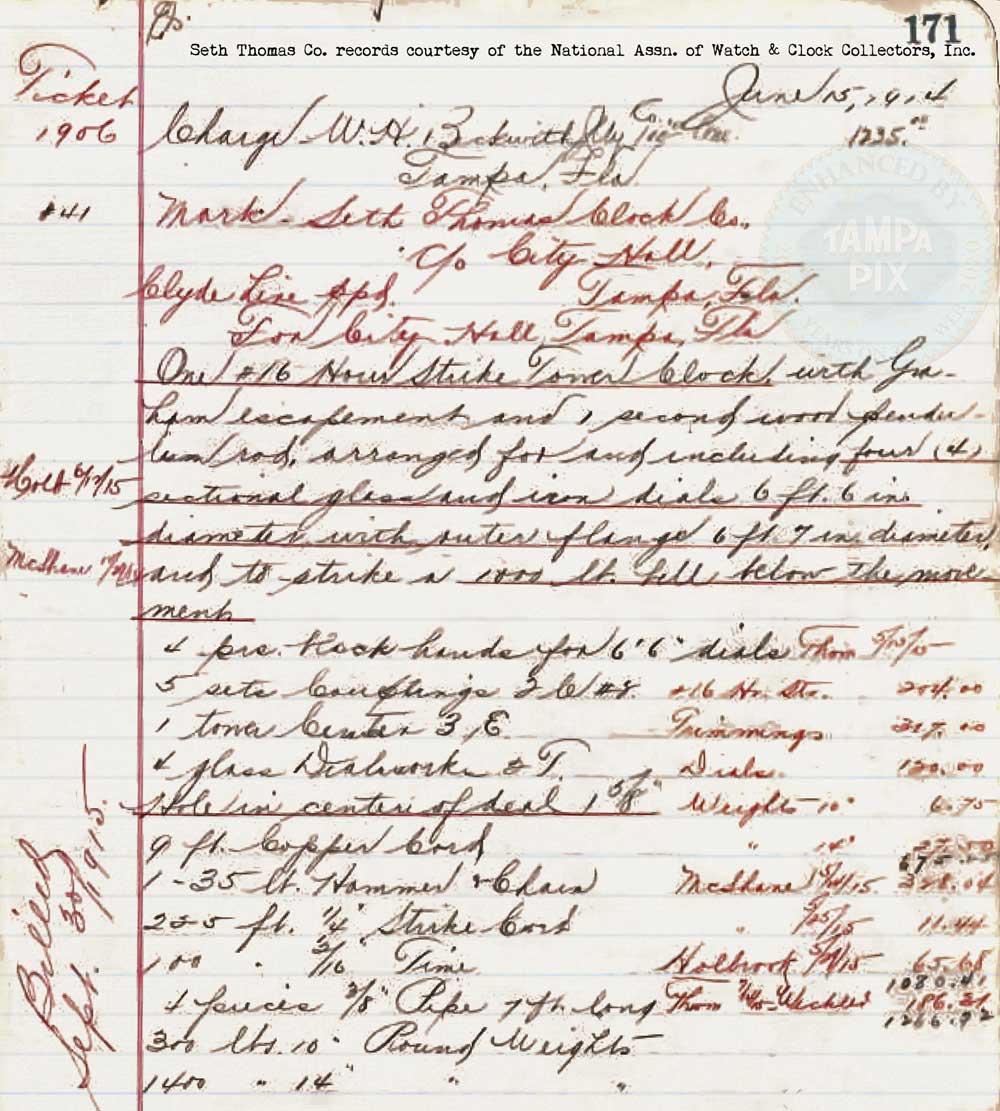 171
Seth Thomas Co. records courtesy of the National Assn. of Watch & Clock Collectors, Inc.
Ticket June 15, 1914
1906 Charge W. H. Beckwith Jly Co. 1235.00
Tampa, Fla.
#41 Mark - Seth Thomas Clock Co.,
c/o City Hall,
Clyde Line Tampa, Fla.
For City Hall, Tampa, Fla
One #16 Hour Strike Tower Clock, with Gra-
ham escapement and 1 second wood pendu-
lum rod, arranged for and including four (4)
sectional glass and iron dials 6 ft. 6 in.
diameter with outer flange 6 ft. 7 in. diameter,
McShane and to strike a 1000 lb. bell below the move
ment
4 prs. hands for 6'6" dials Thom
5 sets Couplings 2 C #8. #16 Hr. Str. 204.00
1 tower Center 3, E. Trimmings 317.00
4 glass Dialworks & T. Dials. 120.00
Hole in center of deal 1 5/8" Weights 10" 6.75
9 ft. Copper Cord " 14" 27.50
675
1-35 lb. Hammer & Chain McShane 328.04
225 ft. 1/4" Strike Cord " 5/25/15 11.44
100 " 3/16 Time Holbrook 65.68
1080.41
4 pieces 3/8" Pipe 7 ft. long Thom 186.51
1266.92
300 lbs. 10" Round Weights
1400 " 14" " "
Billed
Sept. 30, 1915.
ENHANCED BY
TAMPA
PIX